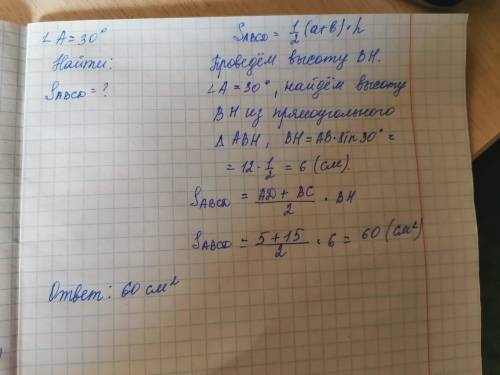 ∠A=30°
Найти:
S_ABCD=?
S_ABCD = 1/2 (a+b)·h
Проведём высоту BH.
∠A=30°, найдём высоту
BH из прямоугольного
Δ ABH, BH=AB·sin30°=
=12·1/2=6 (см).
S_ABCD = (AD+BC)/2 · BH
S_ABCD = (5+15)/2 · 6 = 60 (см²)
Ответ: 60 см²